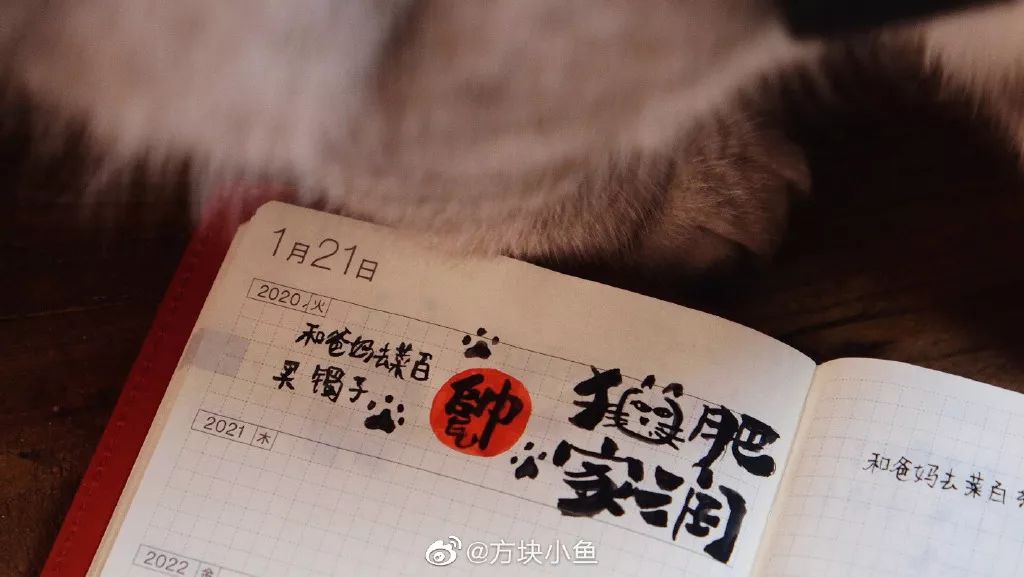 1月21日
2020 火
和爸妈去菜百
买镯子
帥
猫肥
家润
2021 木
2022 金
和爸妈去菜百
@方块小鱼